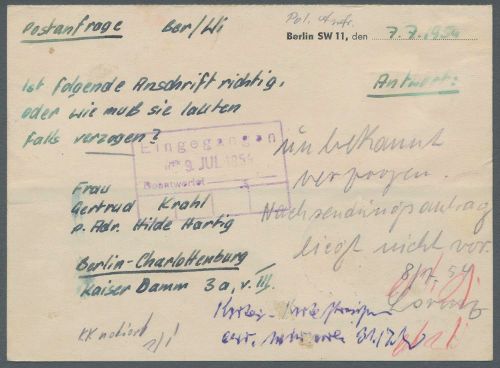 Postanfrage Ber/Wi
Pol. Anfr.
Berlin SW 11, den 7.7.1954
Ist folgende Anschrift richtig,
oder wie muß sie lauten
falls verzogen?
Antwort:
Eingegangen
9. JUL 1954
Beantwortet
Frau
Gertrud Krahl
p. Adr. Hilde Hartig
Berlin-Charlottenburg
Kaiser Damm 3a, v. III
unbekannt
verzogen.
Nachsendungsantrag
liegt nicht vor.
8/7 54
Lorenz
KK notiert